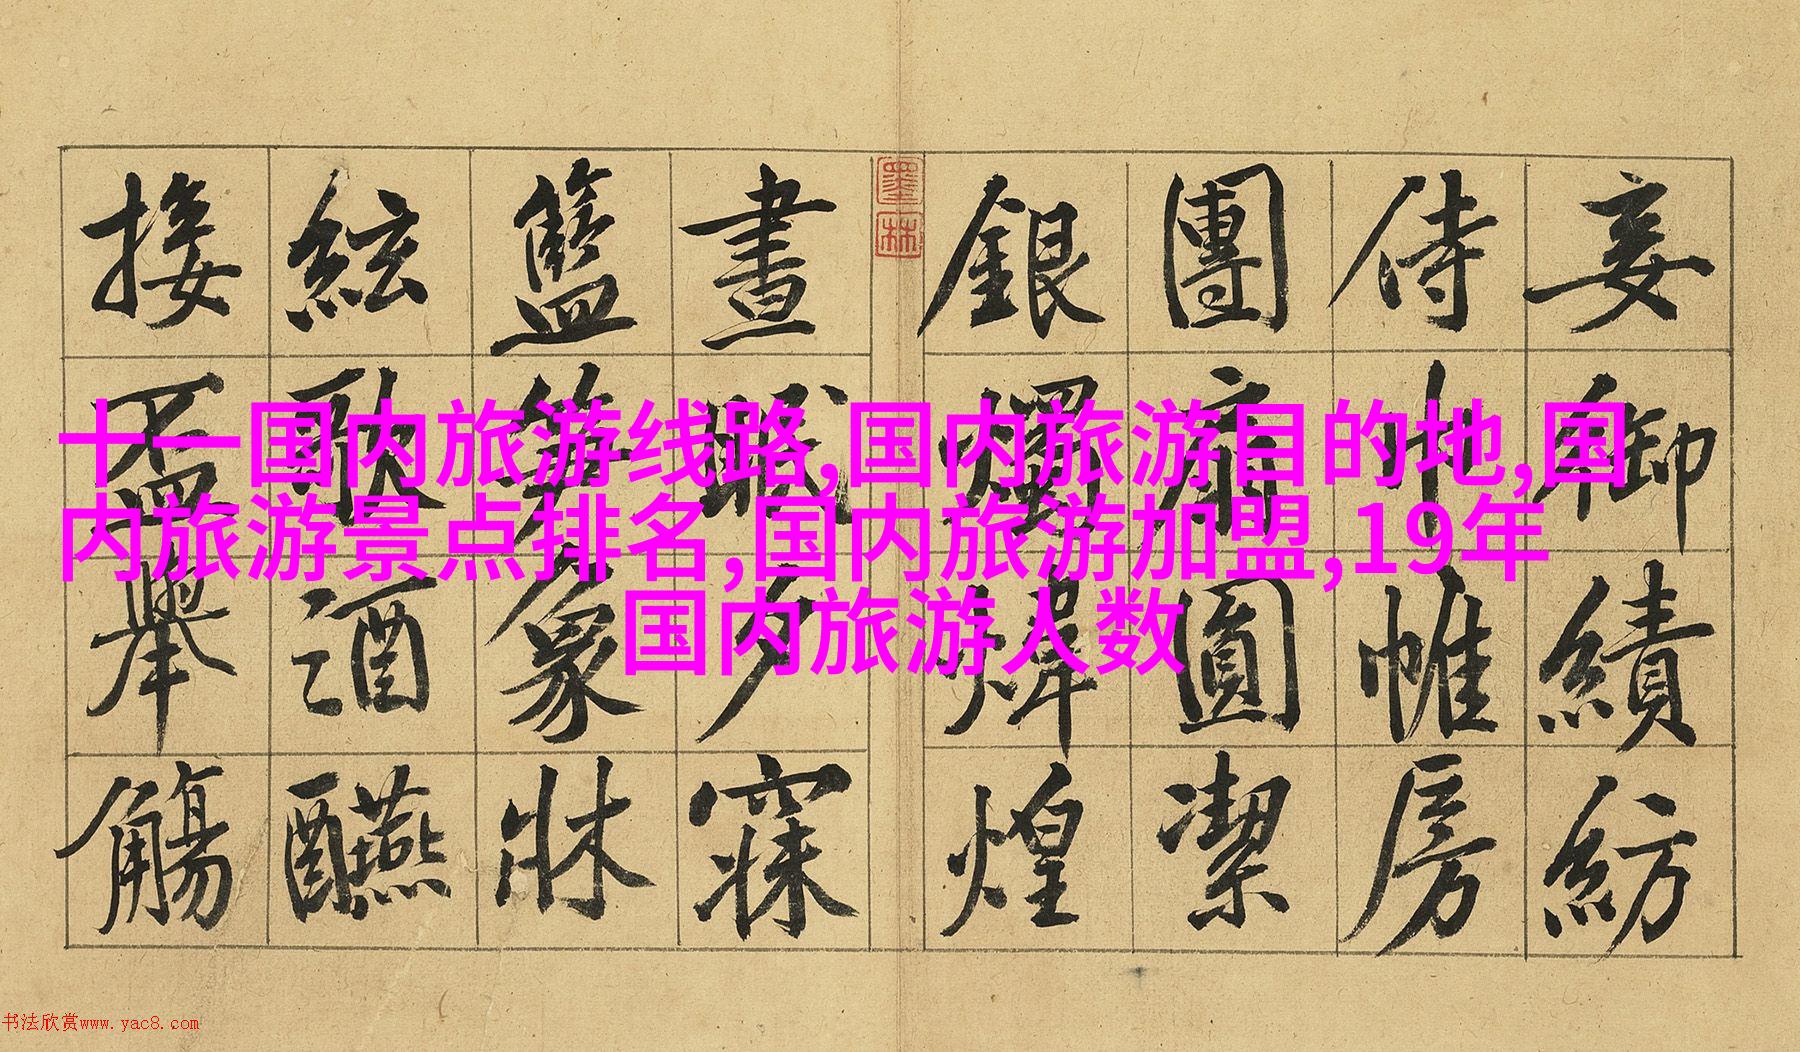 妾御績紡
侍巾帷房
團扇圓潔
銀燭煒煌
墨林
晝眠夕寐
籃笋象牀
絃歌酒醼
接盃舉觴
十一国内旅游线路,国内旅游目的地,国
内旅游景点排名,国内旅游加盟,19年
国内旅游人数
书法欣赏www.yac8.com